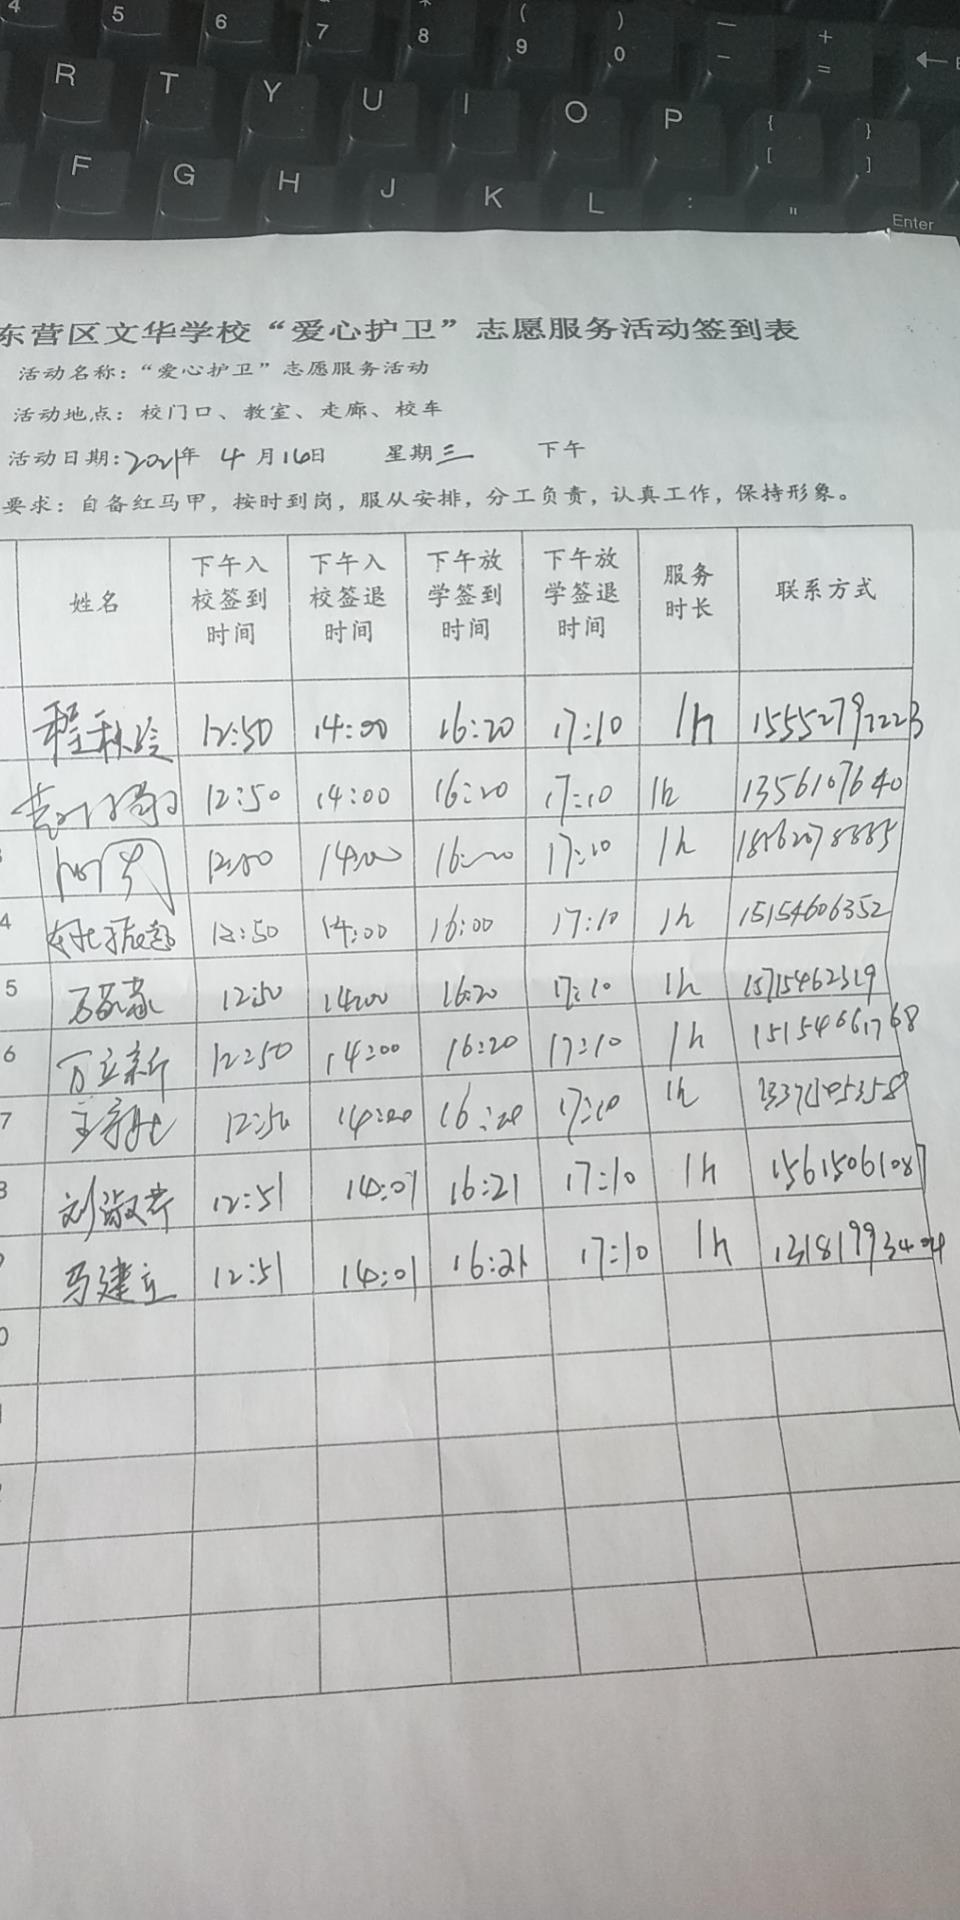 4 5 6 7 * 8 ( 9 ) 0 — - + =
R T Y U I O P { [ } ]
F G H J K L : " Enter
东营区文华学校“爱心护卫”志愿服务活动签到表
活动名称:“爱心护卫”志愿服务活动
活动地点: 校门口、教室、走廊、校车
活动日期:2021年 4月16日 星期三 下午
要求: 自备红马甲，按时到岗，服从安排，分工负责，认真工作，保持形象。
姓名 下午入校签到时间 下午入校签退时间 下午放学签到时间 下午放学签退时间 服务时长 联系方式
12:50 14:00 16:20 17:10 1h 15552797223
12:50 14:00 16:20 17:10 1h 1356107640
12:50 14:00 16:20 17:10 1h
4 12:50 14:00 16:00 17:10 1h 15154606352
5 12:50 14:00 16:20 17:10 1h 15715462319
6 万立新 12:50 14:00 16:20 17:10 1h 15154661768
7 12:50 14:00 16:20 17:10 1h
刘淑芳 12:51 14:01 16:21 17:10 1h 15615061087
马建立 12:51 14:01 16:21 17:10 1h 13181993404